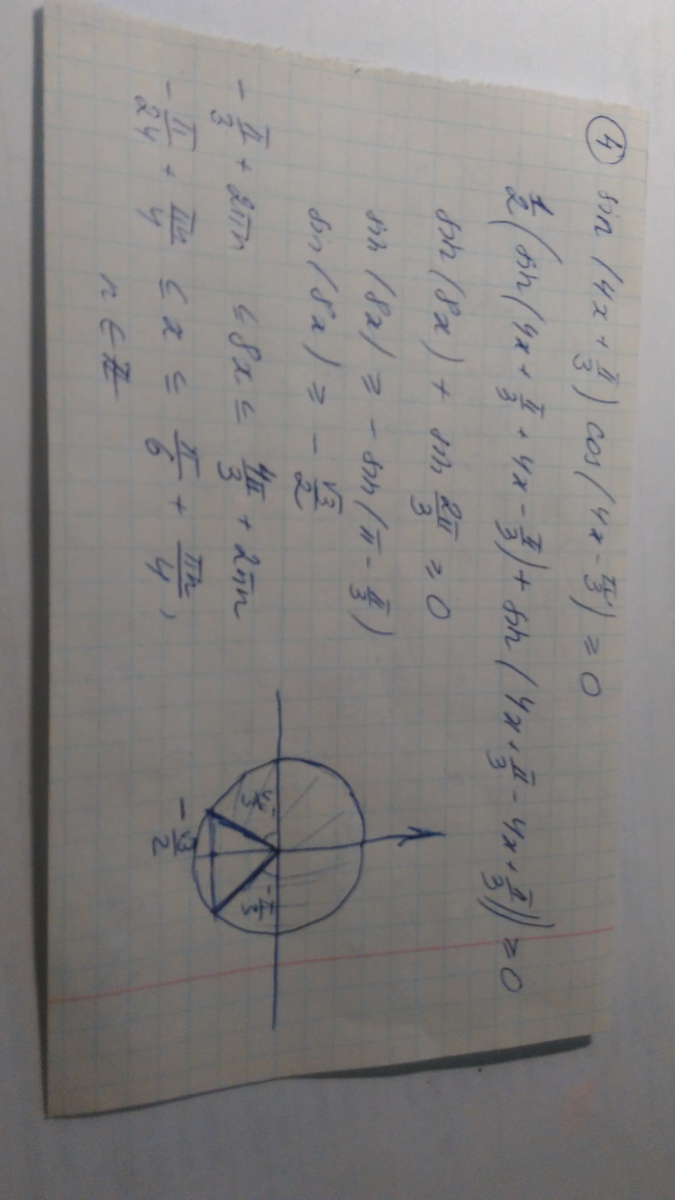 ④ sin(4x + π/3) cos(4x - π/3) ≥ 0
1/2 (sin(4x + π/3 + 4x - π/3) + sin(4x + π/3 - 4x + π/3)) ≥ 0
sin(8x) + sin 2π/3 ≥ 0
sin(8x) ≥ - sin(π - π/3)
sin(8x) ≥ - √3/2
- π/3 + 2πn ≤ 8x ≤ 4π/3 + 2πn
- π/24 + πn/4 ≤ x ≤ π/6 + πn/4,
n ∈ Z
4π/3
- π/3
- √3/2